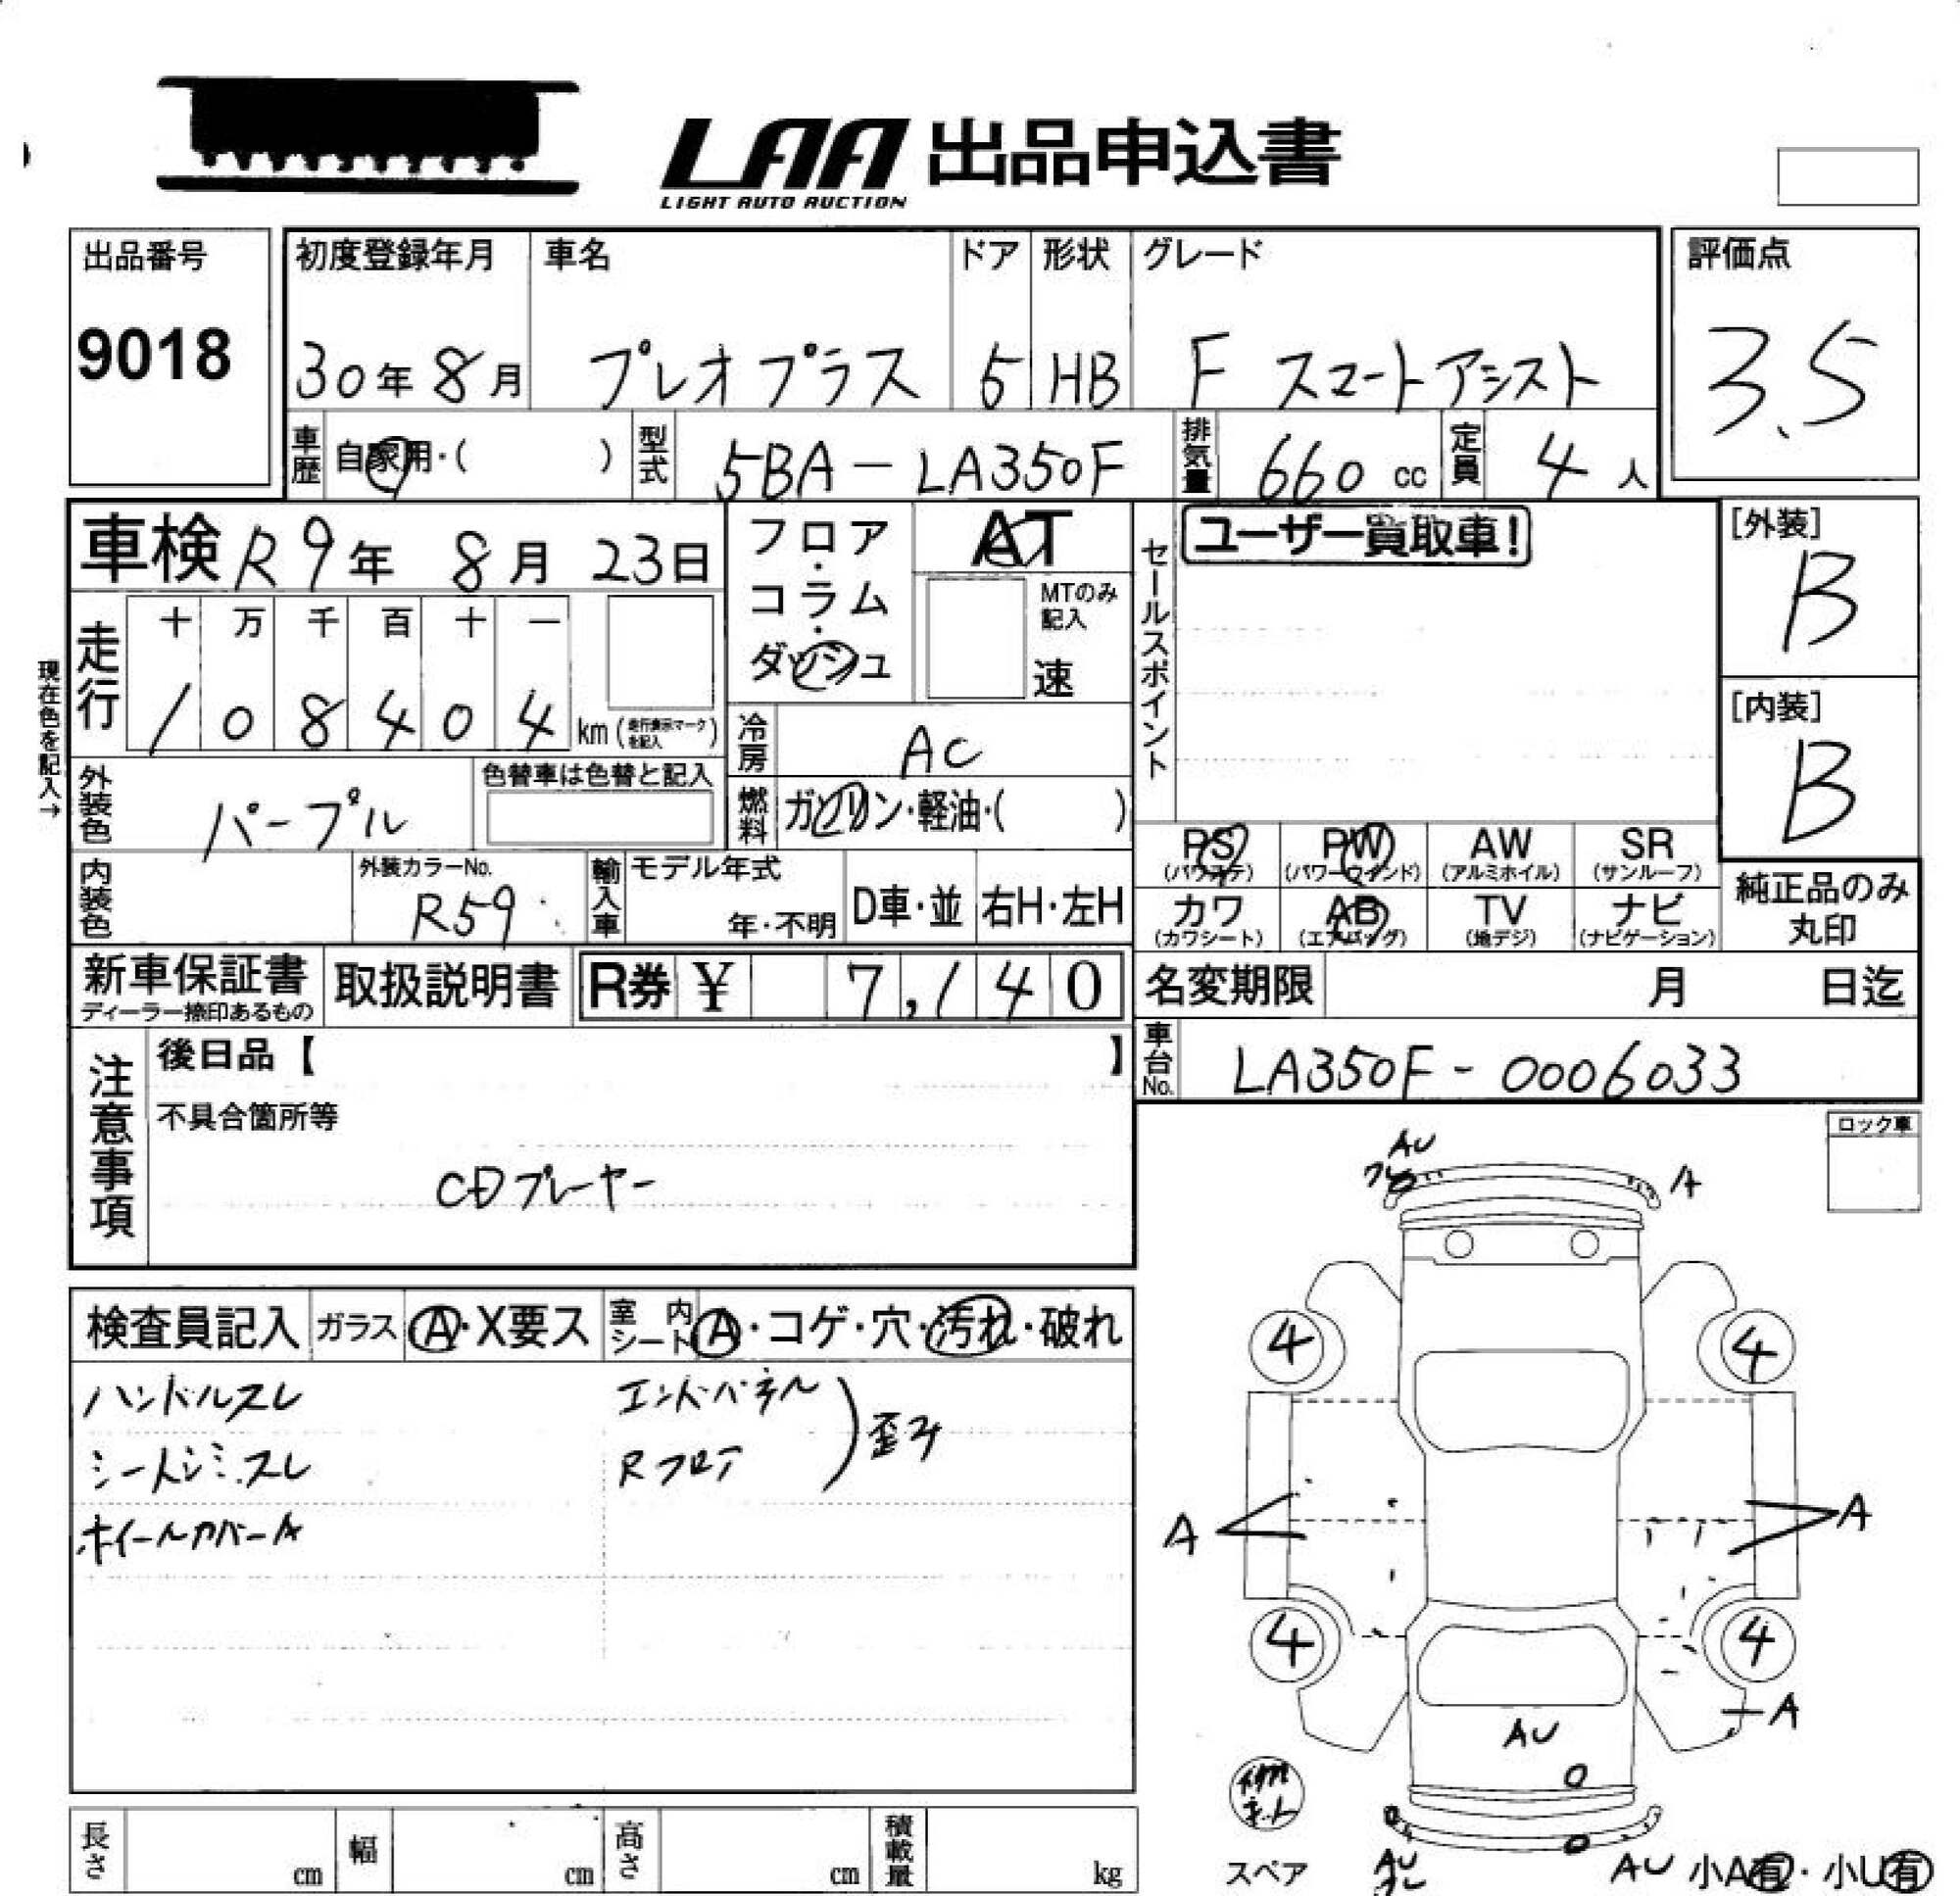 LAA 出品申込書
LIGHT AUTO AUCTION
出品番号
9018
初度登録年月 車名 ドア 形状 グレード
30年8月 プレオプラス 5 HB F スマートアシスト
評価点
3.5
車歴 自家用・( ) 型式 5BA-LA350F 排気量 660 cc 定員 4 人
車検 R9年 8月 23日
フロア・コラム・ダッシュ
AT
MTのみ記入
速
現在色を記入→
走行
十 万 千 百 十 一
1 0 8 4 0 4 km (走行表示マークを記入)
冷房 AC
燃料 ガソリン・軽油・( )
外装色 パープル
色替車は色替と記入
内装色
外装カラーNo.
R59
輸入車 モデル年式
年・不明 D車・並 右H・左H
セールスポイント
ユーザー買取車!
[外装]
B
[内装]
B
PS PW AW SR
(パワステ) (パワーウインド) (アルミホイル) (サンルーフ)
カワ AB TV ナビ
(カワシート) (エアバッグ) (地デジ) (ナビゲーション)
純正品のみ
丸印
新車保証書
ディーラー捺印あるもの
取扱説明書
R券 ¥ 7,140
名変期限 月 日迄
車台No. LA350F-0006033
注意事項
後日品【 】
不具合箇所等
CDプレーヤー
ロック車
検査員記入 ガラス A・X要ス 室内シート A・コゲ・穴・汚れ・破れ
ハンドルスレ エンドパネル
シートシミ.スレ Rフロア
歪み
ホイールカバーA
AU
A
4 4
A A
4 4
A
AU
スペア
AU
AU 小A有・小U有
長さ cm 幅 cm 高さ cm 積載量 kg